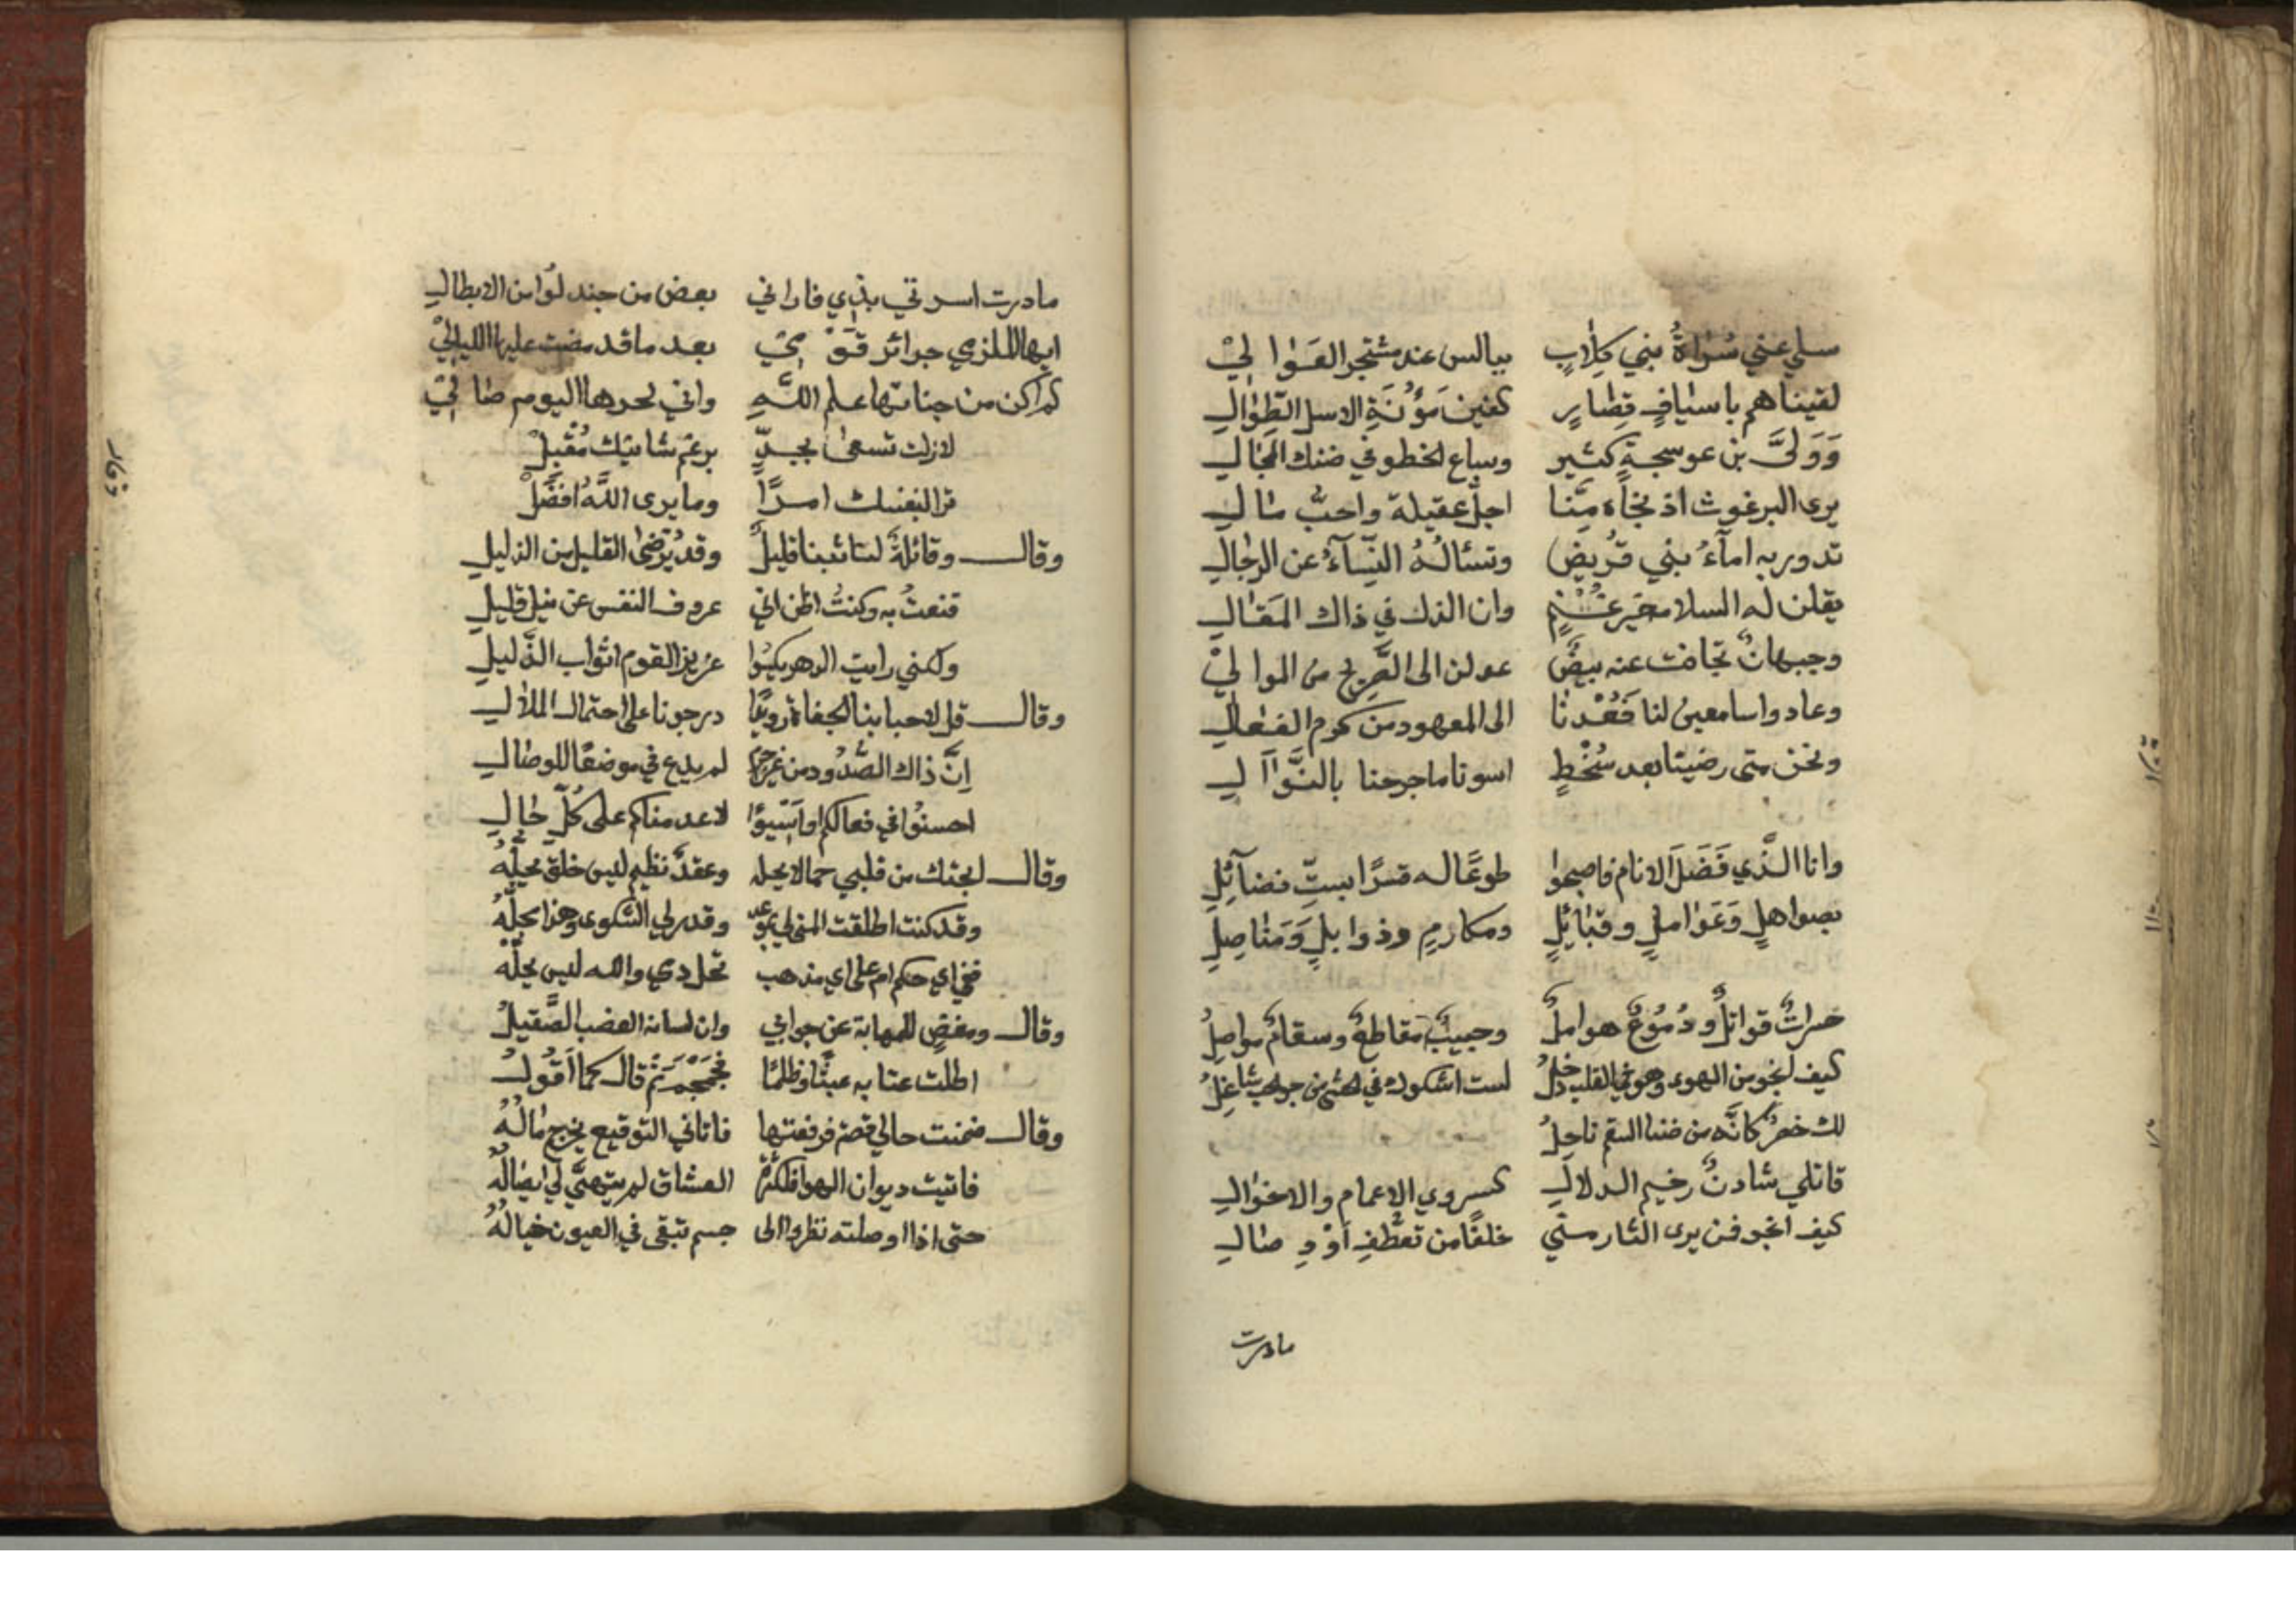 سلي عني سراة بني كلاب ببالس عند مشتجر العوالي
لقيناهم باسياف قصار كفين مؤنة الاسل الطوال
وولى بن عوسجة كثير وساع الخطو في ضنك المجال
يرى البرغوث اذ نجاه منا اجل عقيلة واحب مال
تدور به امآء بني قريض وتسئاله النسآء عن الرجال
يقلن له السلام خير غنم وان الذل في ذاك المقال
وجبهان تجافت عنه بيض عولن الى الصريح من الموالي
وعادوا سامعين لنا فعدنا الى المعهود من كرم الفعال
ونحن متى رضينا بعد سخط اسونا ما جرحنا بالنوال
وانا الذي فضل الانام فاصبحوا طوعا له قسرا بست فضآئل
بصواهل وعوامل وقبائل ومكارم وذوابل ومناصل
حسرات قواتل ودموع هوامل وحبيب مقاطع وسقام مواصل
كيف انجو من الهوى وهو في القلب داخل لست اشكو وفي الحشى من جوى الحب شاغل
لك خصر كانه من ضنا السقم ناحل
قاتلي شادن رخيم الدلال كسروي الاعمام والاخوال
كيف انجو فمن يرى الثار مني خلقا من تعطف او وصال
مادرت
مادرت اسرتي بذي قار اني بعض من جندلوا من الابطال
ايها الملزمي جرائر قومي بعد ما قد مضت عليها الليالي
لم اكن من جناتها علم الله واني لحرها اليوم صالي
لازلت تسعى بجد برغم شانيك مقبل
ترا لنفسك امرا وما يرى الله افضل
وقال وقائلة لنائبنا قليل وقد يرضى القليل من الذليل
قنعت به وكنت اظن اني عروف النفس عن نيل قليل
ولكني رايت الدهر يكسوا عزيز القوم اثواب الذليل
وقال قل لاحبابنا الجفاة رويدا درجونا على احتمال الملال
ان ذاك الصدود من غير جرم لم يدع في موضعا للوصال
احسنوا في فعالكم او اسيؤا لا عدمناكم على كل حال
وقال ابحتك من قلبي حمالا يحله وعقد نظيم ليس خلق يحله
وقد كنت اطلقت المنى لي بموعد وقدر لي الشكوى وهذا محله
ففي اي حكم ام على اي مذهب تحل دمي والله ليس يحله
وقال ومغض للمهابة عن جوابي وان لسانه العضب الصقيل
اطلت عتابه عبثا وظلما فجمجم ثم قال كما اقول
وقال ضمنت حالي قصة فرفعتها فاتاني التوقيع يخرج ماله
فاتيت ديوان الهوا فلكثرة العشاق لم يتهي لي ايصاله
حتى اذا اوصلته نظروا الى جسم تبقى في العيون خياله